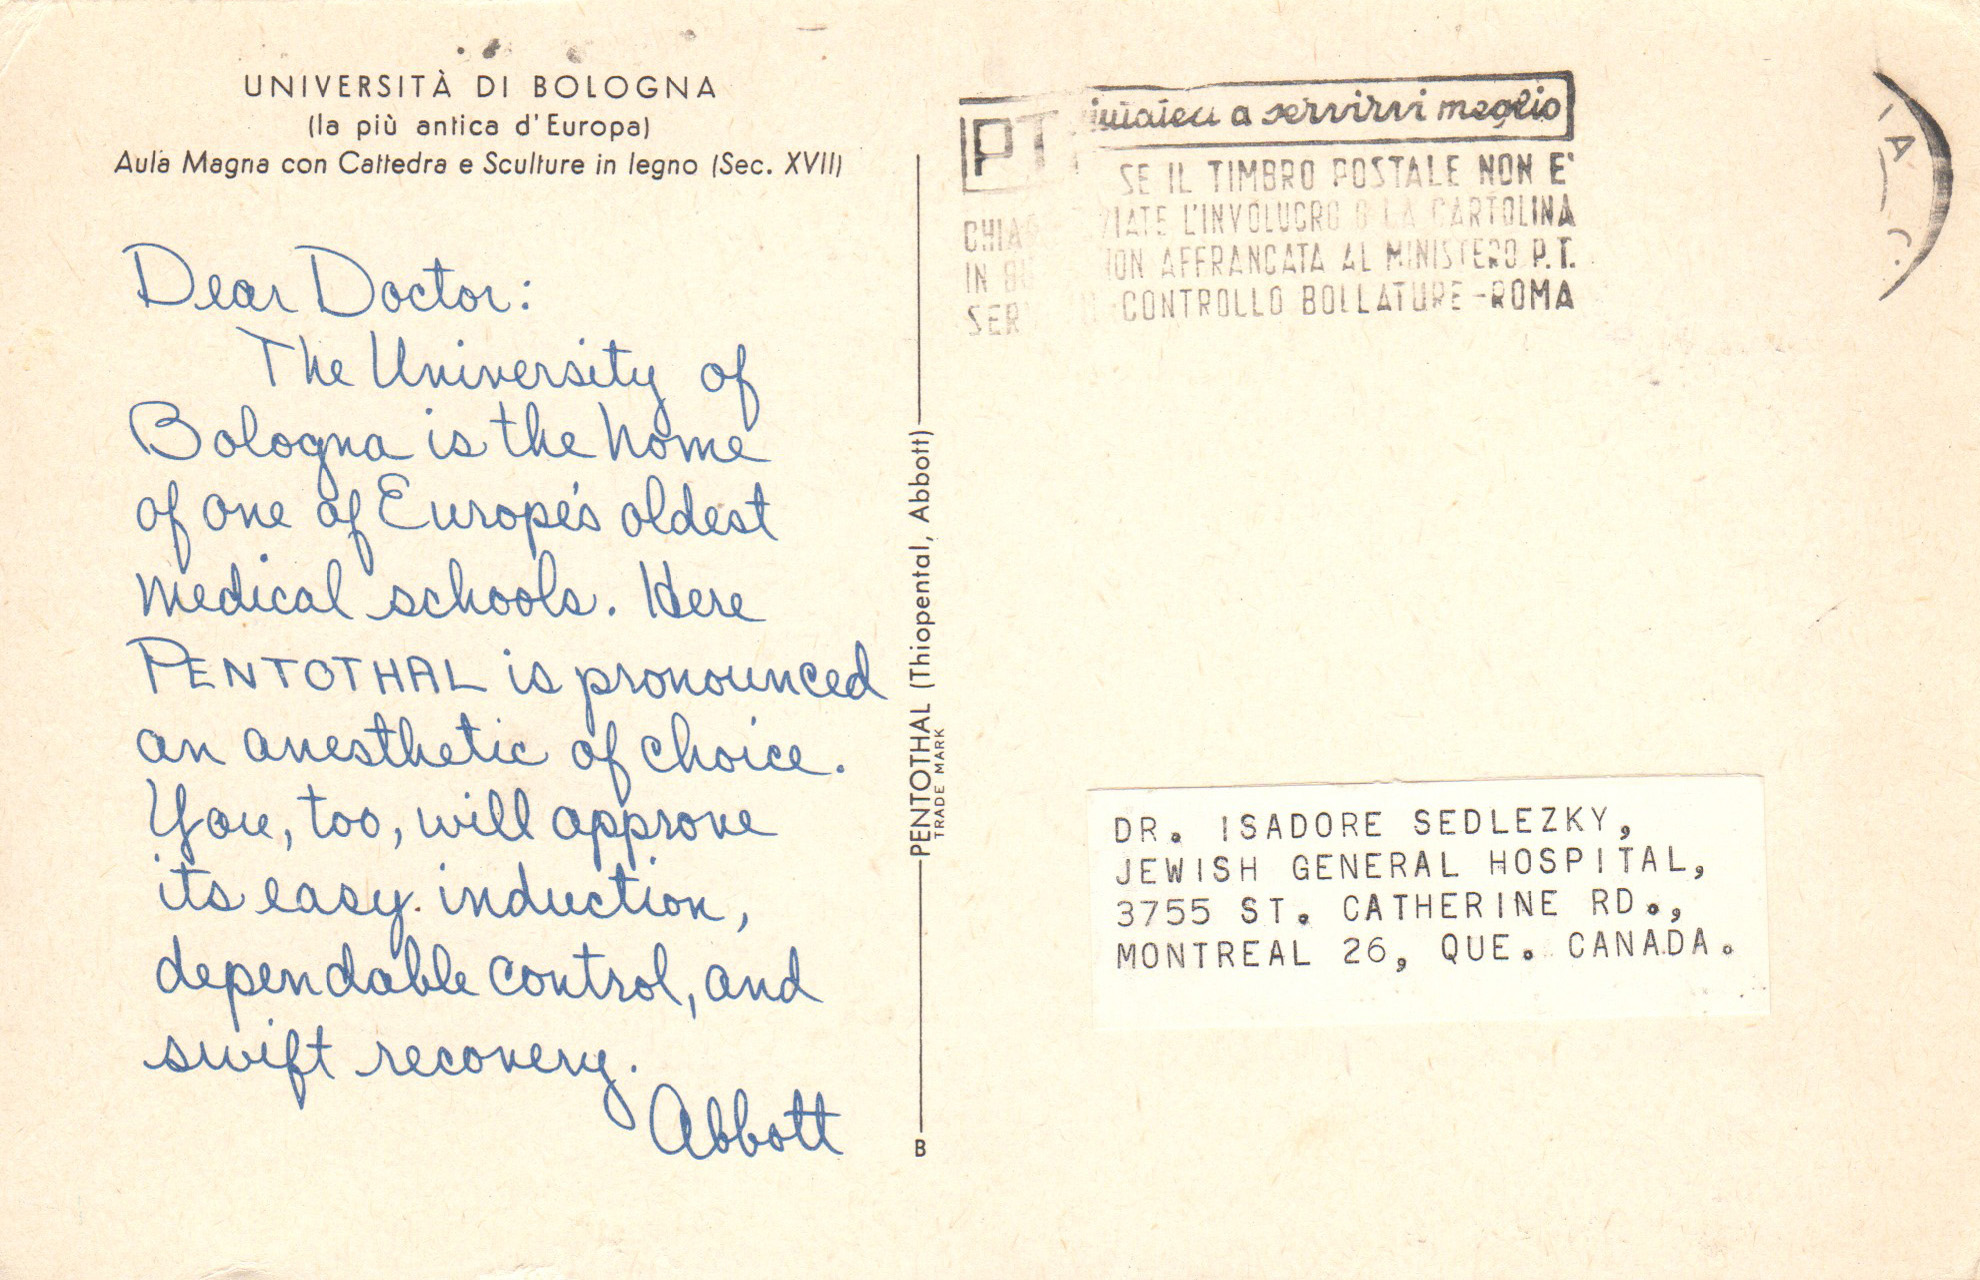 UNIVERSITÀ DI BOLOGNA
(la più antica d'Europa)
Aula Magna con Cattedra e Sculture in legno (Sec. XVII)
Dear Doctor:
The University of
Bologna is the home
of one of Europe's oldest
medical schools. Here
PENTOTHAL is pronounced
an anesthetic of choice.
You, too, will approve
its easy induction,
dependable control, and
swift recovery.
Abbott
PENTOTHAL (Thiopental, Abbott)
TRADE MARK
B
PT a servirvi meglio
SE IL TIMBRO POSTALE NON E'
L'INVOLUCRO O LA CARTOLINA
IN AFFRANCATA AL MINISTERO P.T.
CONTROLLO BOLLATURE-ROMA
DR. ISADORE SEDLEZKY,
JEWISH GENERAL HOSPITAL,
3755 ST. CATHERINE RD.,
MONTREAL 26, QUE. CANADA.